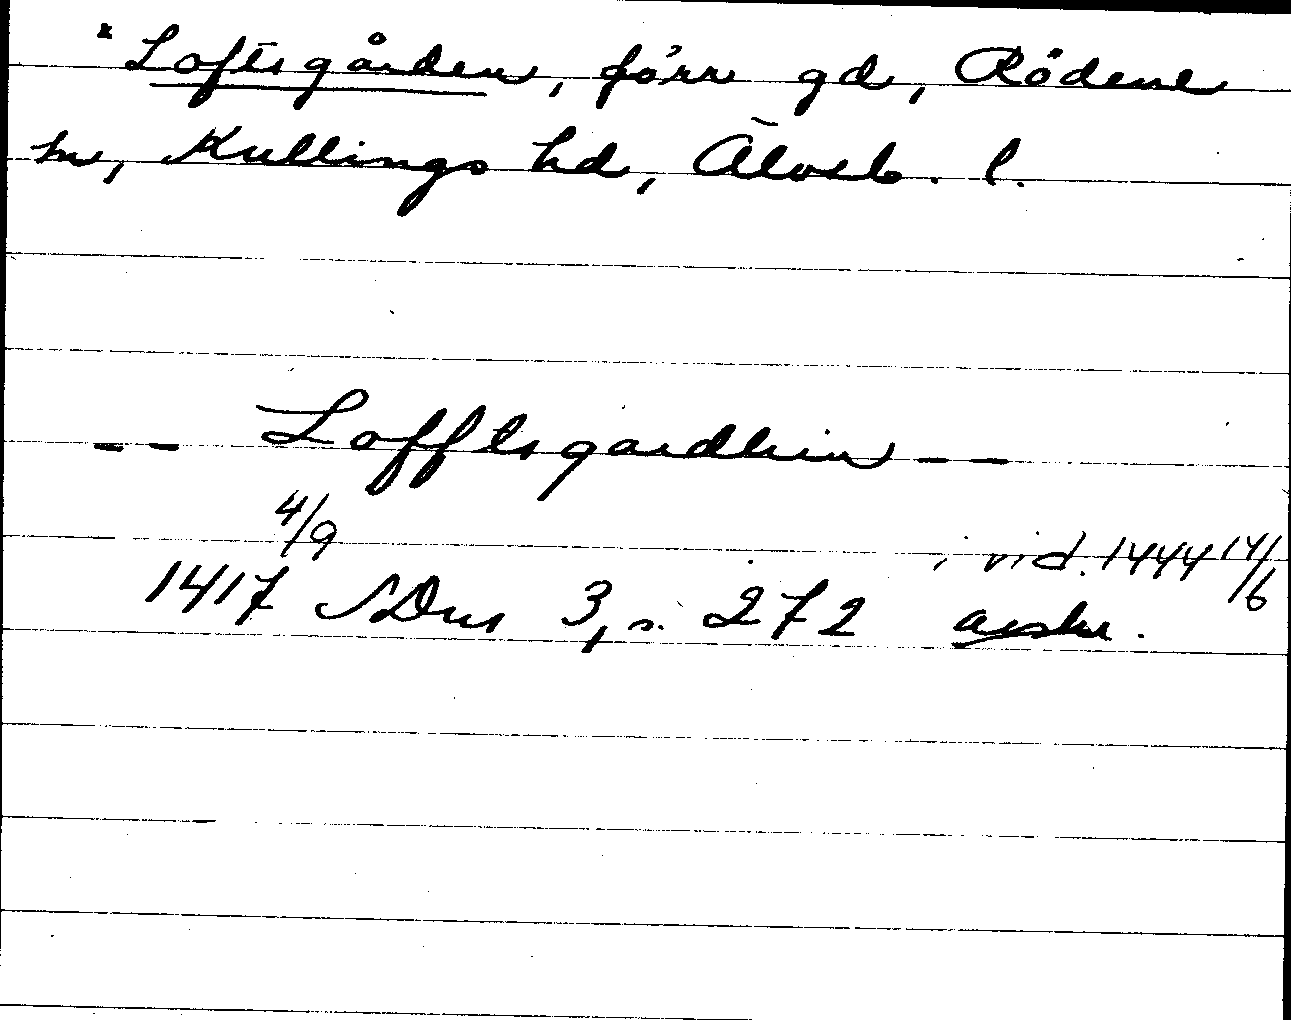 * Loftsgården, förr gd, Rödene
sn, Kullings hd, Älvsb. l.
-- Lofftsgardhin --
4/9
i vid. 1444 14/6
1417 SDns 3, s. 272 avskr.